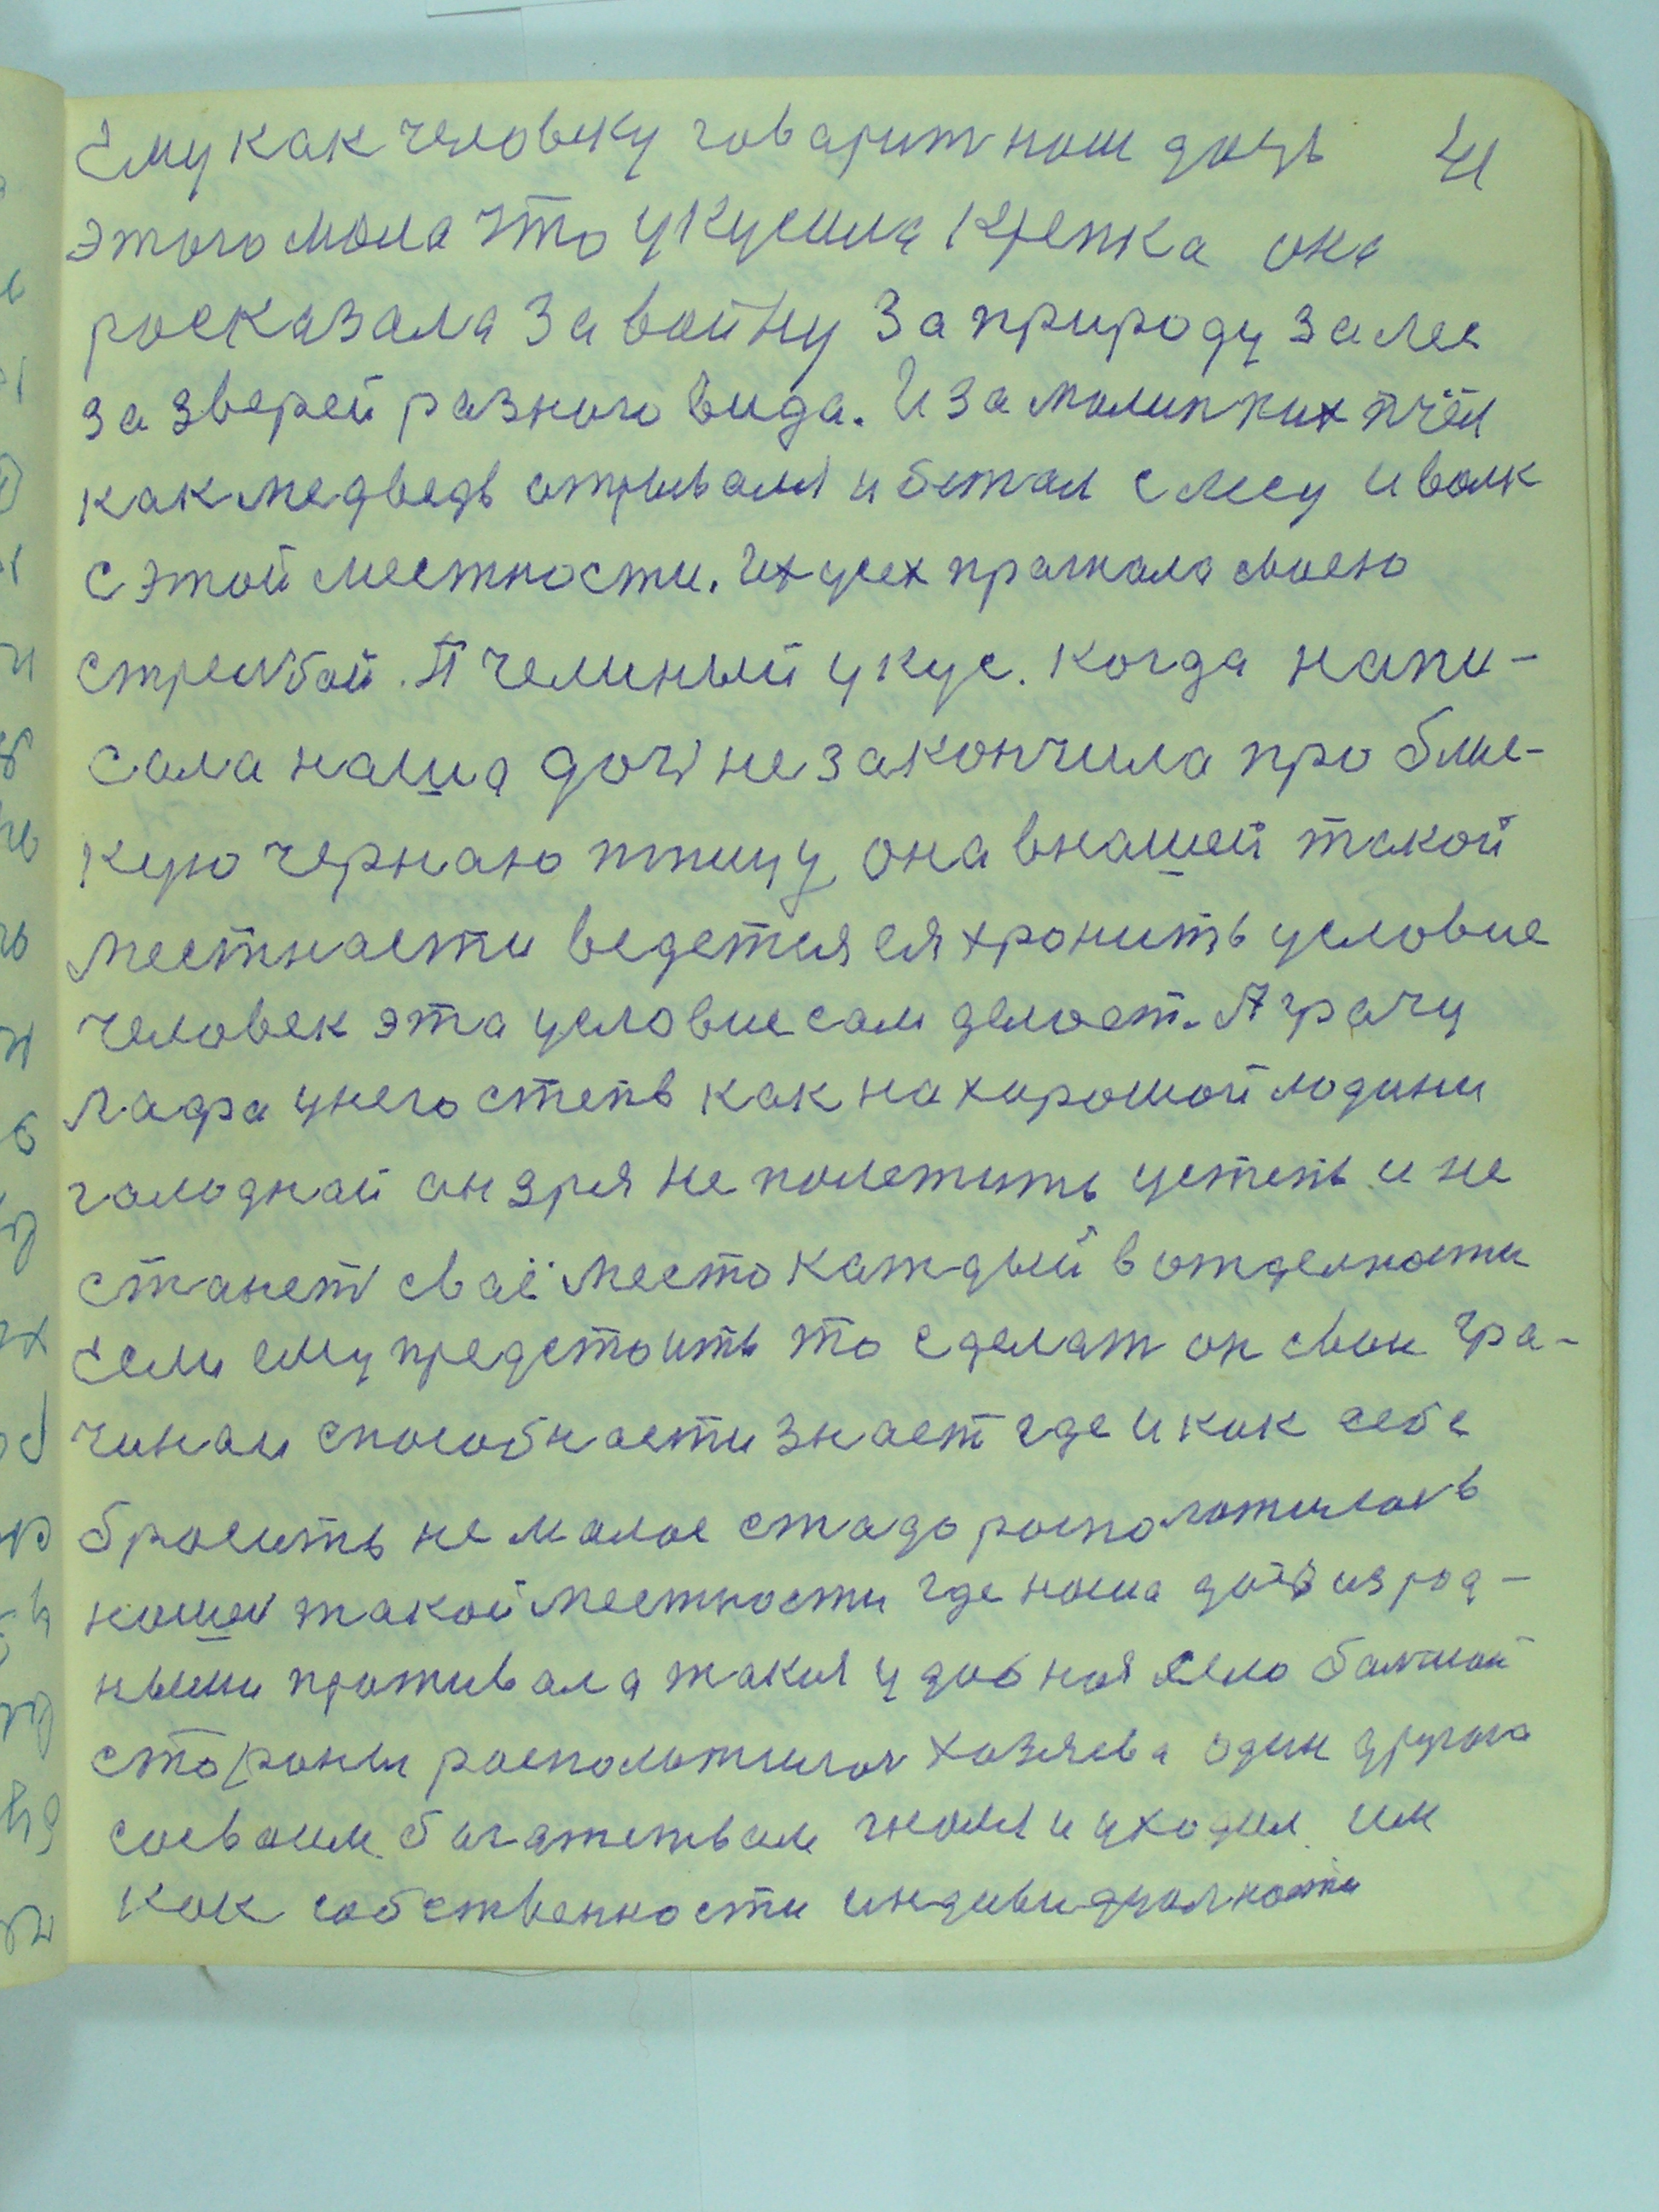 Ему как человеку говарит наш дощь 41
этого мала что укусила крепка она
росказала за войну за природу за лес
за зверей разного вида. И за малинких пчёл
как медведь отрывался и бежал с лесу и волк
с этой местности. Их усех прагнала своею
стрельбой. Пчелиный укус. когда напи-
сала наша дочь не закончила про блис-
кую чернаю птицу она в нашей такой
местнасти ведется ея хронить условие
человек эта условие сам делает. А грачу
лафа у него степь как на хорошой лодини
галоднай он зря не полетить устепь и не
станет сваё место каждый в отделности
Если ему предстоить то сделат он свои гра-
чинаи способнасти знает где и как себе
бросить не малое стадо росположилось в
нашей такой местности где наша дочь из род-
ными проживала такая удобная село балшой
стороны росположился хозяева один другого
сосваим багатетвам гнался и уходил им
как собственности индивидуалности